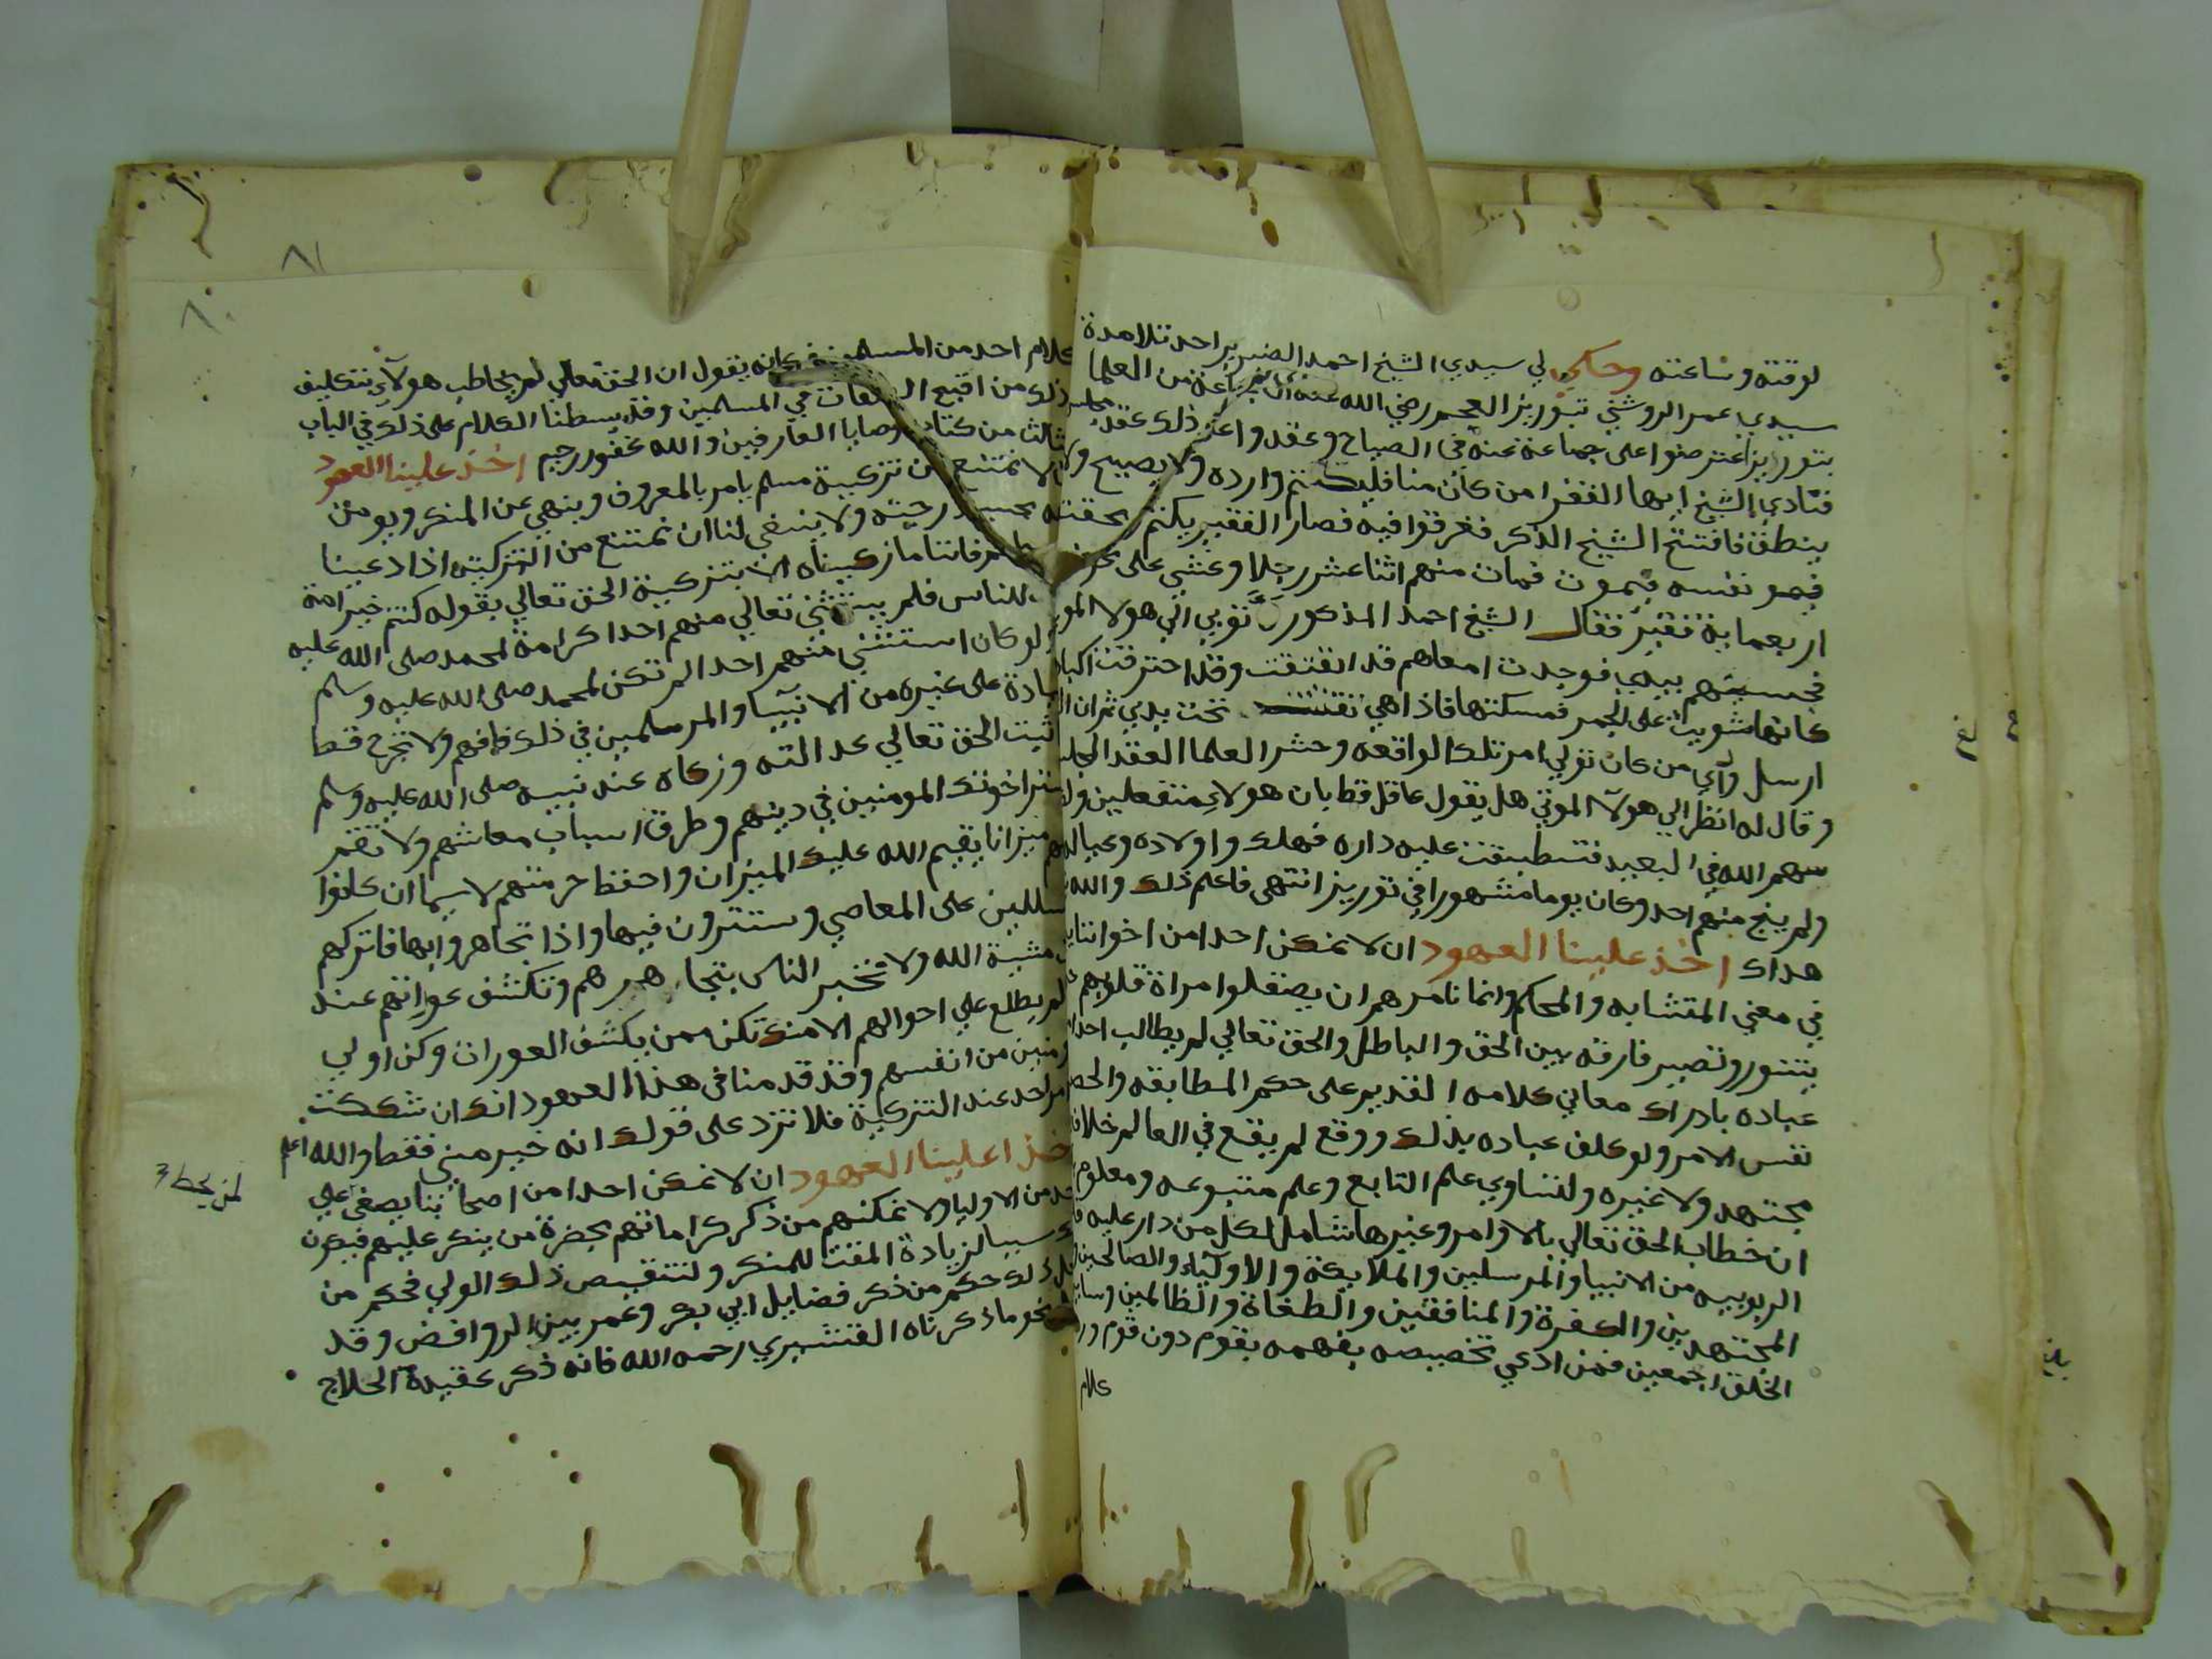 لوقته وساعته وحكي لي سيدي الشيخ احمد الضرير احد تلامدة
سيدي عمر الروشني بتوريز العجم رضي الله عنه ان جماعة من العلما
بتوريز اعترضوا على جماعة عنه في الصباح وعقدوا على ذلك عقد مجلس
فنادي الشيخ ايها الفقرا من كان منا فليكتم وارده ولا يصيح ولا
ينطق فافتتح الشيخ الذكر فغرقوا فيه فصار الفقير يكتم
فيمو نفسه فيموت فمات منهم اثنا عشر رجلا وغشي على نحو
اربعماية فقير فقال الشيخ احمد المذكور نوبي الي هولا الموتي
فحسيتهم بيدي فوجدت امعاهم قد اتفتقت وقد احترقت اكباد
كانها شويت على الجمر فمسكتها فاذا هي تفتت تحت يدي ثم ان
ارسل ورآي من كان تولي امر تلك الواقعه وحشر العلما العقد المجلس
وقال له انظر الي هولآ الموتي هل يقول عاقل قط بان هولاء متفعلين
سهم الله في البعيد فتطبقت عليه داره فهلك واولاده وعياله
ولم ينج منهم احد وكان يوما مشهورا في توريز انتهى فاعلم ذلك والله
هداك اخذ علينا العهود ان لا نمكن احدا من اخواننا
في معني المتشابه والمحاكم وانما نامرهم ان يصقلوا مراة قلوبهم
يتنور وتصير فارقة بين الحق والباطل والحق تعالي لم يطالب احدا
عباده بادراك معاني كلامه القديم على حكم المطابقه والحصر
نفس الامر ولو كلف عباده بذلك ووقع لم يقع في العالم خلاف
مجتهد ولا غيره ولتساوي علم التابع وعلم متبوعه ومعلوم
ان خطاب الحق تعالي بالاوامر وغيرها شامل لكل من دار عليه
الربوبيه من الانبيا والمرسلين والملايكة والاولياء والصالحين
المجتهدين والكفرة والمنافقين والطغاة والظالمين وساير
الخلق اجمعين فمن ادعي تخصيصه بفهمه بقوم دون قوم ورد
كلام
بلغ
٨١
٨٠
كلام احد من المسلمين فكانه يقول ان الحق تعالي لم يخاطب هولآء بتكليف
ذلك من اقبح الصفات في المسلمين وقد بسطنا الكلام على ذلك في الباب
الثالث من كتاب وصايا العارفين والله غفور رحيم اخذ علينا العهود
ان لا نمتنع من تزكية مسلم يامر بالمعروف وينهي عن المنكر ويومن
بحسب درجته ولا ينبغي لنا ان نمتنع من التزكيه اذا دعينا
فاننا ما زكيناه الا بتزكية الحق تعالي بقوله كنتم خير امة
للناس فلم يستثني تعالي منهم احدا كرامة لمحمد صلى الله عليه
ولو كان استثني منهم احدا لم تكن لمحمد صلى الله عليه وسلم
زيادة على غيره من الانبيا والمرسلين في ذلك فافهم ولا تجرح قط
ثبت الحق تعالي عدالته وزكاه عند نبيه صلى الله عليه وسلم
اخوتك المومنين في دينهم وطرق اسباب معاشهم ولا تقم
ميزانا يقيم الله عليك الميزان واحفظ حرمتهم لا سيما ان كانوا
على المعاصي وستترون فيها واذا تجاهروا بها فاتركهم
مشية الله ولا تخبر الناس بتجاهرهم وتكشف عوراتهم عند
لم يطلع علي احوالهم الا منك تكن ممن يكشف العورات وكن اولي
من انفسهم وقد قدمنا في هذا العهود انك ان شككت
احد عند التزكية فلا تزد على قولك انه خير مني فقط والله اعلم
اخذ علينا العهود ان لا نمكن احدا من اصحابنا يصغي علي
احد من الاوليا ولا نمكنهم من ذكر كراماتهم بحضرة من ينكر عليهم فيكون
سببا لزيادة المقت للمنكر ولتنقيص ذلك الولي فحكم من
ذلك حكم من ذكر فضايل ابي بكر وعمر بين الروافض وقد
نحو ما ذكرناه القشيري رحمه الله فانه ذكر عقيدة الحلاج